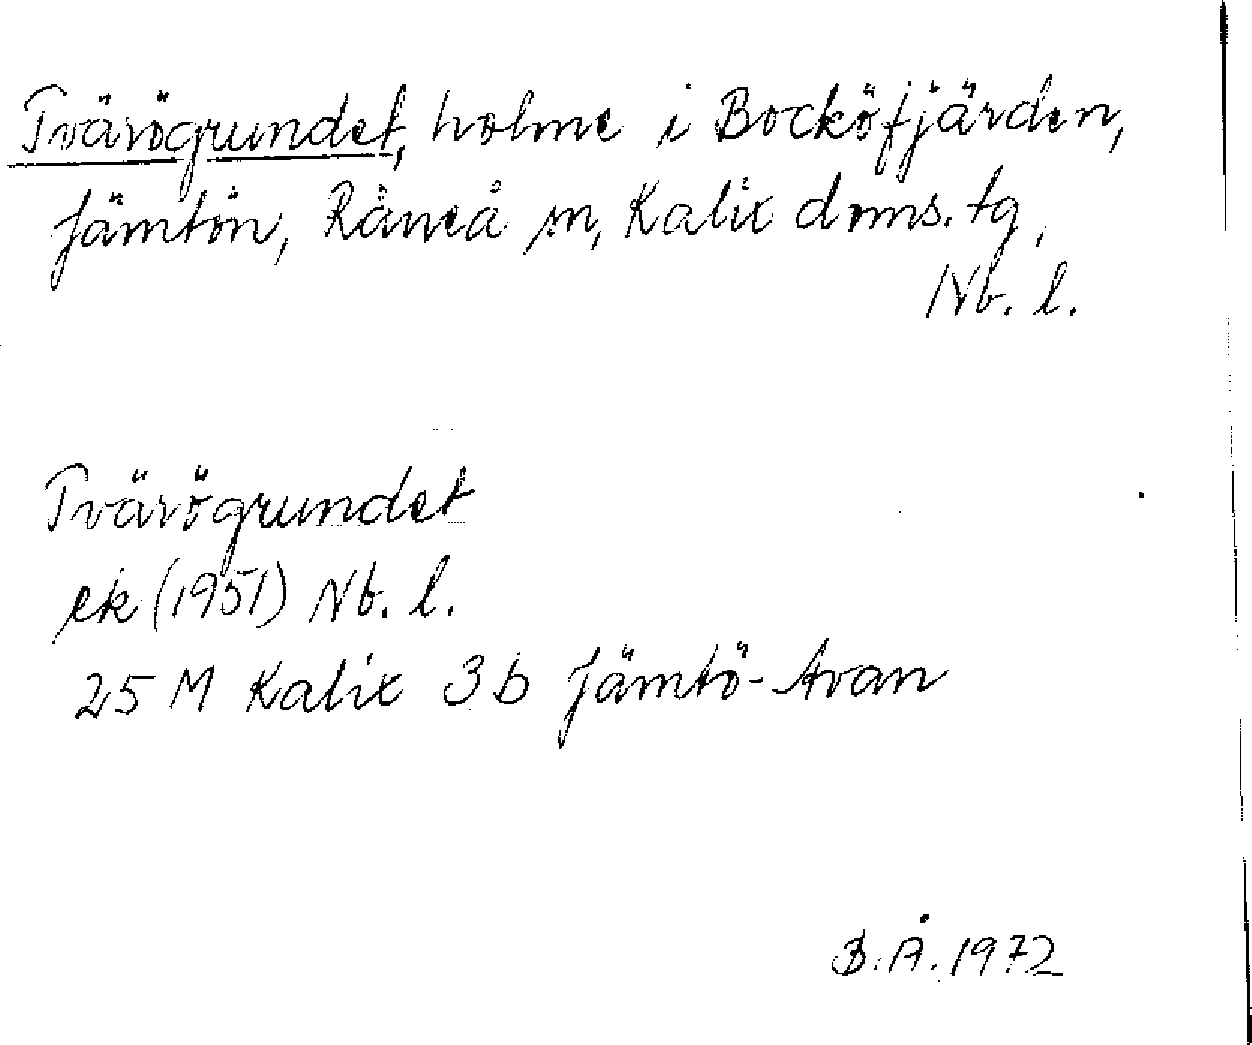 Tvärögrundet, holme i Bocköfjärden,
Jämtön, Råneå sn, Kalix doms. tg,
Nb. l.
Tvärögrundet
ek (1951) Nb. l.
25 M Kalix 3 b Jämtö-Avan
B. Å. 1972